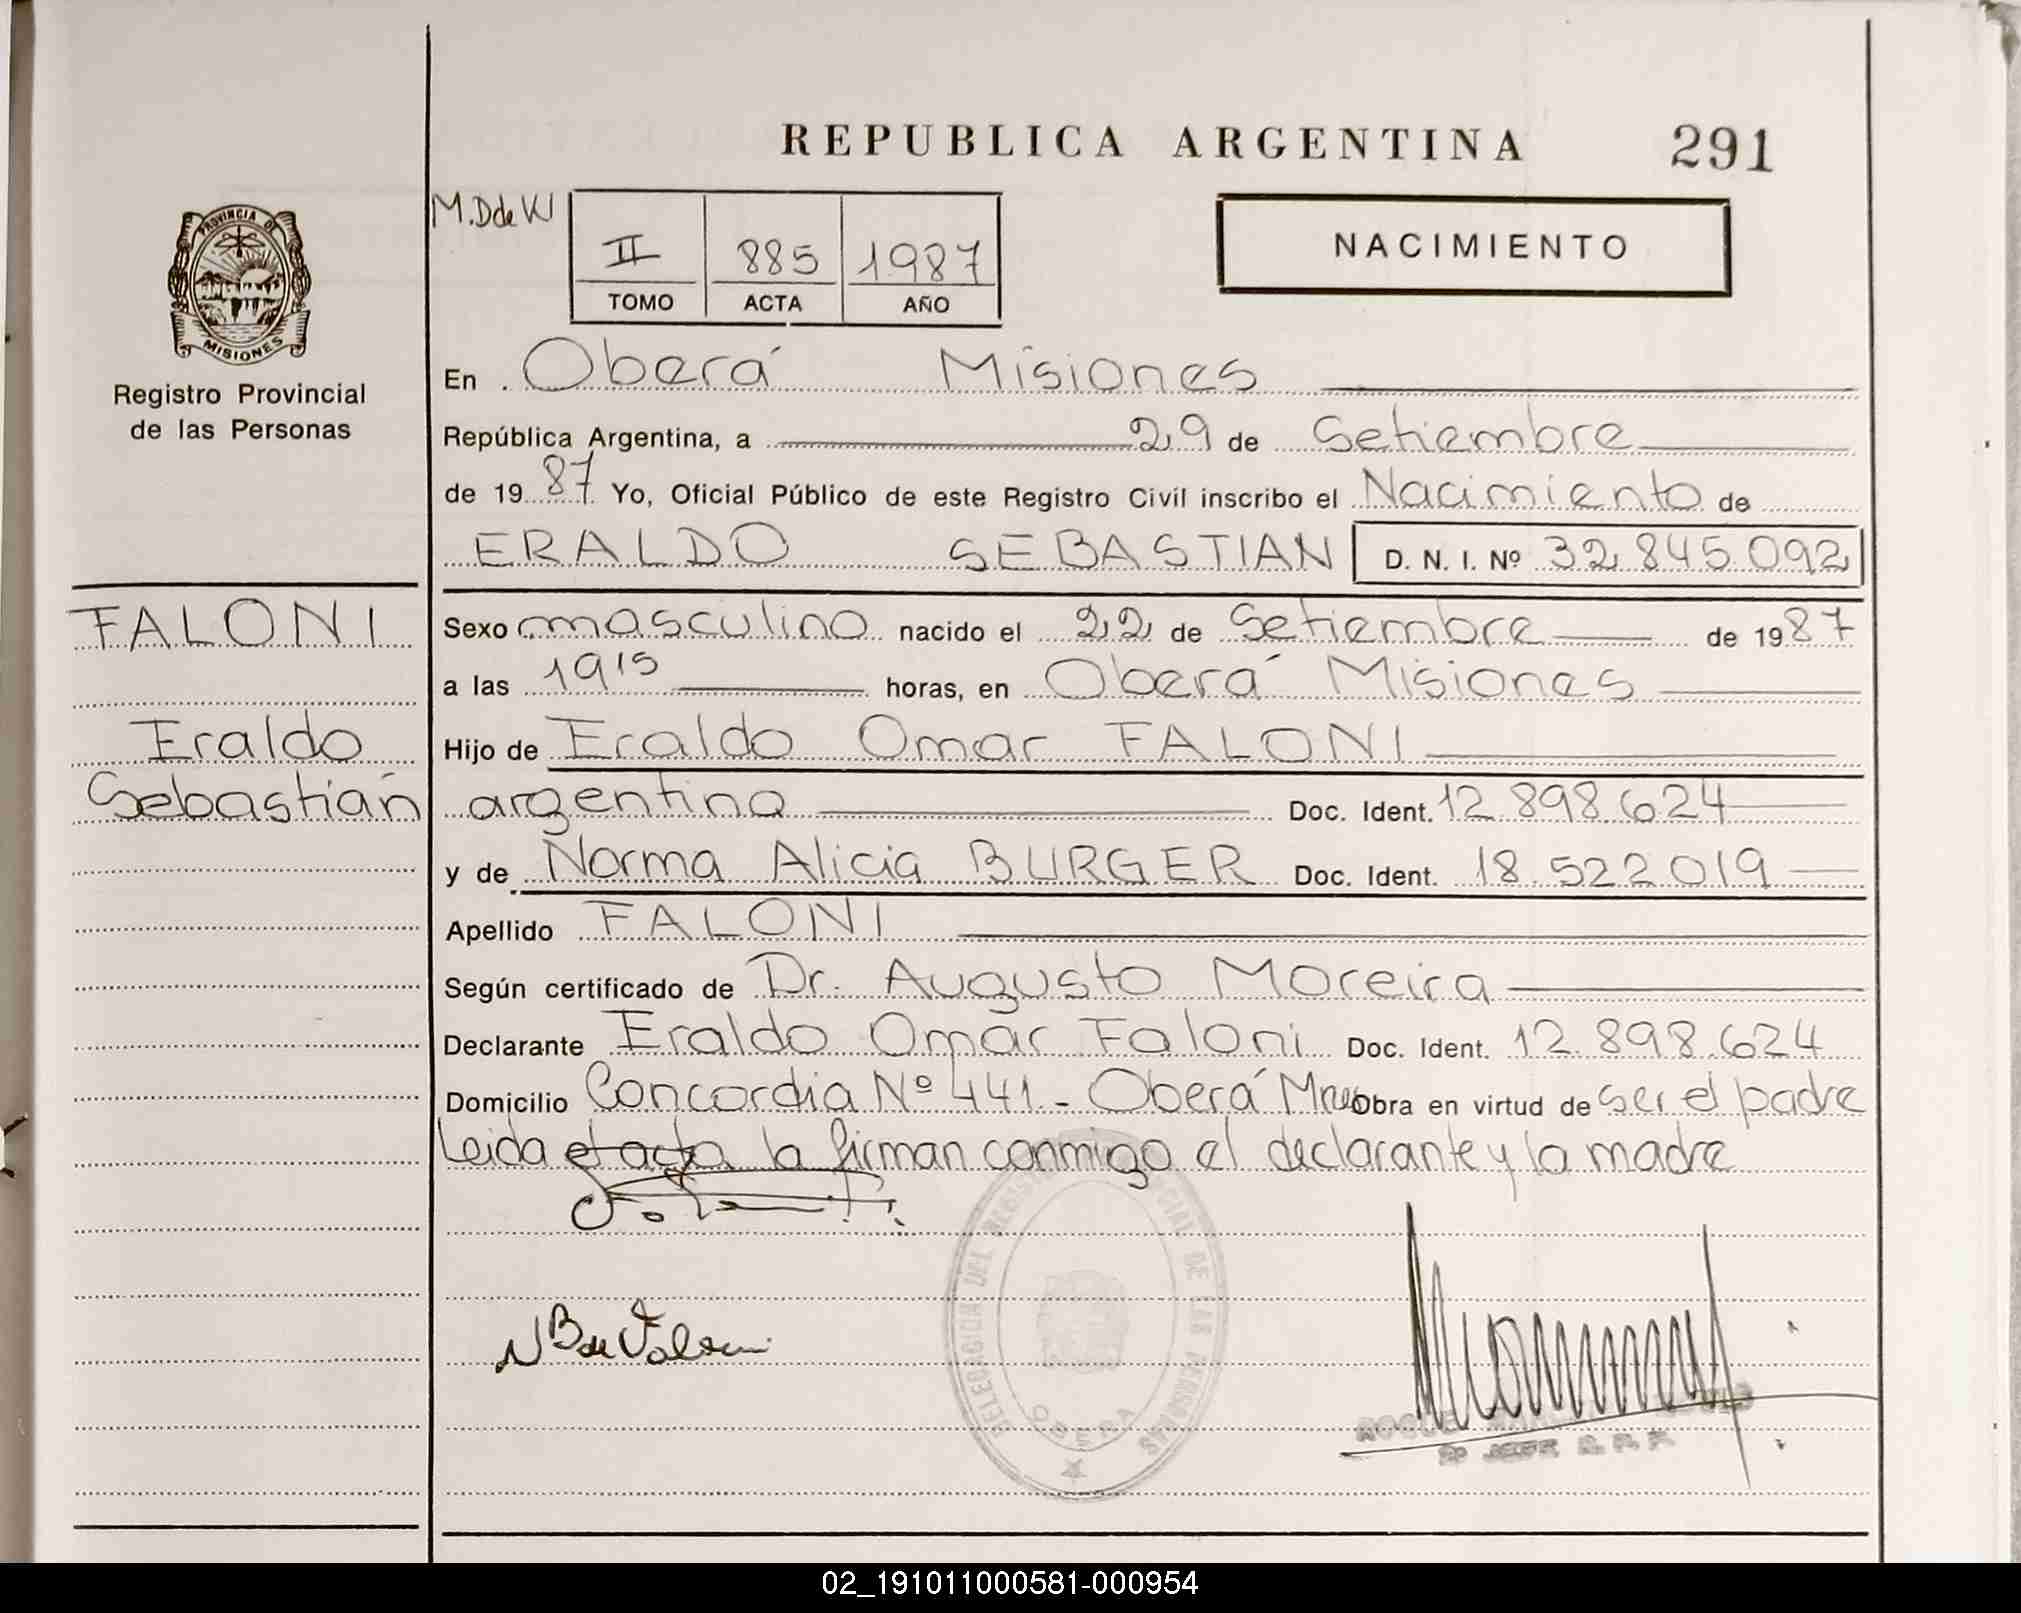 REPUBLICA ARGENTINA 291
M.D de K
II 885 1987
TOMO ACTA AÑO
NACIMIENTO
PROVINCIA DE
MISIONES
Registro Provincial
de las Personas
FALONI
Eraldo
Sebastián
En Oberá Misiones
República Argentina, a 29 de Setiembre
de 1987 Yo, Oficial Público de este Registro Civil inscribo el Nacimiento de
ERALDO SEBASTIAN D. N. I. Nº 32.845.092
Sexo masculino nacido el 22 de Setiembre de 1987
a las 19¹⁵ horas, en Oberá Misiones
Hijo de Eraldo Omar FALONI
argentino Doc. Ident. 12.898.624
y de Norma Alicia BURGER Doc. Ident. 18.522.019
Apellido FALONI
Según certificado de Dr. Augusto Moreira
Declarante Eraldo Omar Faloni Doc. Ident. 12.898.624
Domicilio Concordia Nº 441 - Oberá Mnes Obra en virtud de ser el padre
Leida el acta la firman conmigo el declarante y la madre
N B de Faloni
DELEGACION DEL REGISTRO PROVINCIAL DE LAS PERSONAS
OBERA
02_191011000581-000954